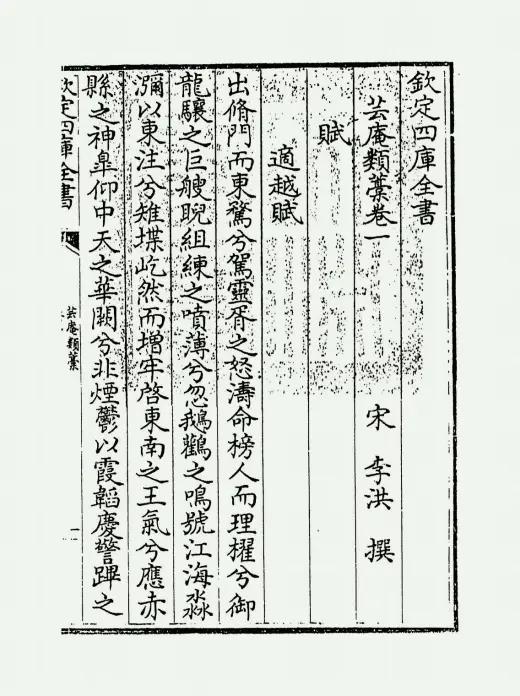 欽定四庫全書
芸庵類藁卷一 宋 李洪 撰
賦
適越賦
出脩門而東騖兮駕靈胥之怒濤命榜人而理櫂兮御
龍驤之巨艘睨組練之噴薄兮忽鵝鸛之鳴號江海淼
瀰以東注兮雉堞屹然而增牢啓東南之王氣兮應赤
縣之神臯仰中天之華闕兮非煙鬱以霞韜慶警蹕之
欽定四庫全書
芸庵類藁